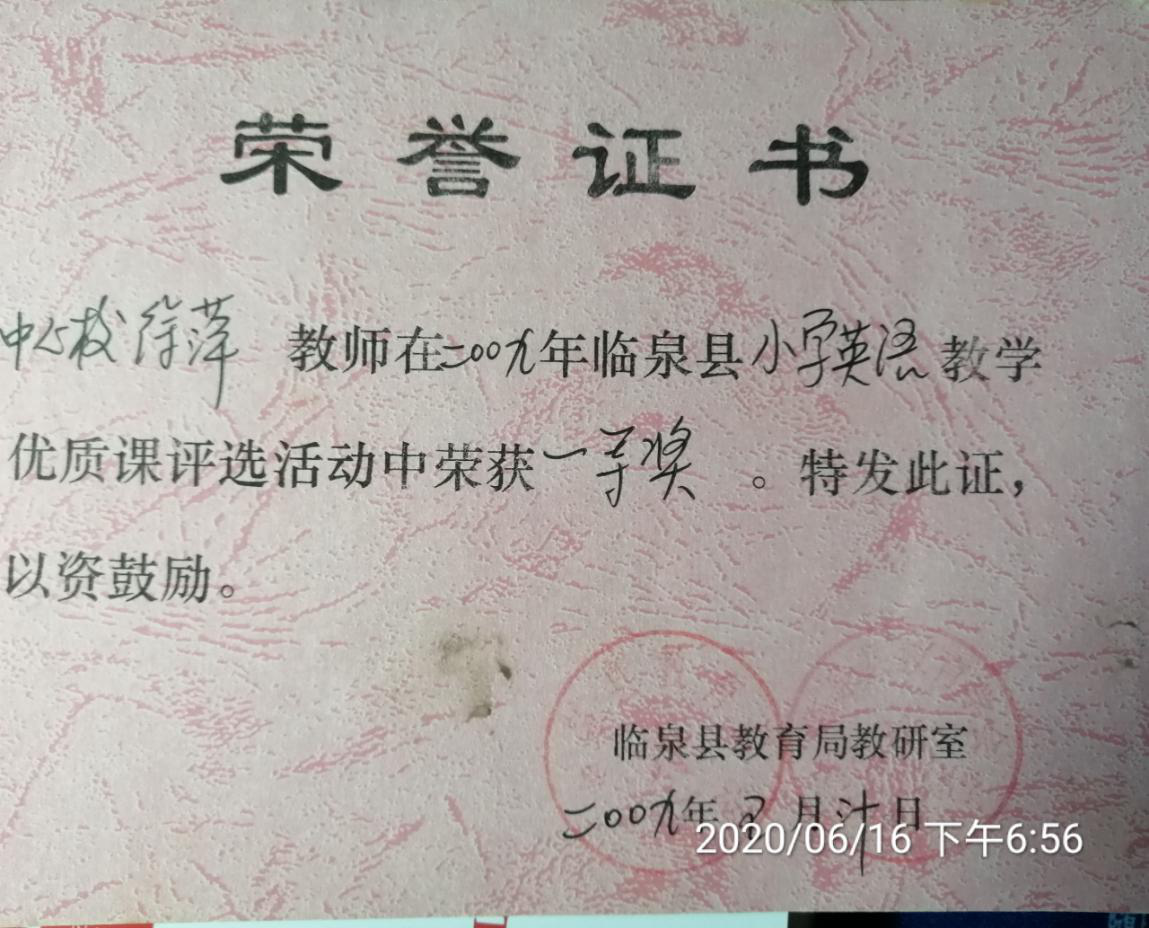 荣誉证书
中心校徐萍 教师在二〇〇九年临泉县小学英语教学
优质课评选活动中荣获一等奖。特发此证，
以资鼓励。
临泉县教育局教研室
二〇〇九年 月 日
2020/06/16 下午6:56